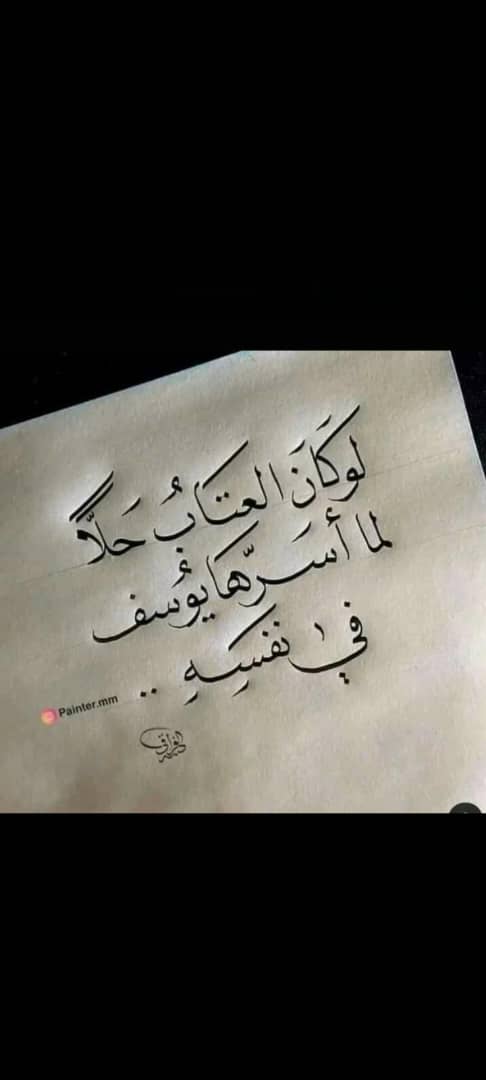 لو كَانَ العتَابُ حَلاًّ
لما أسَرّها يُوسف
في نفسِهِ ..
Painter.mm